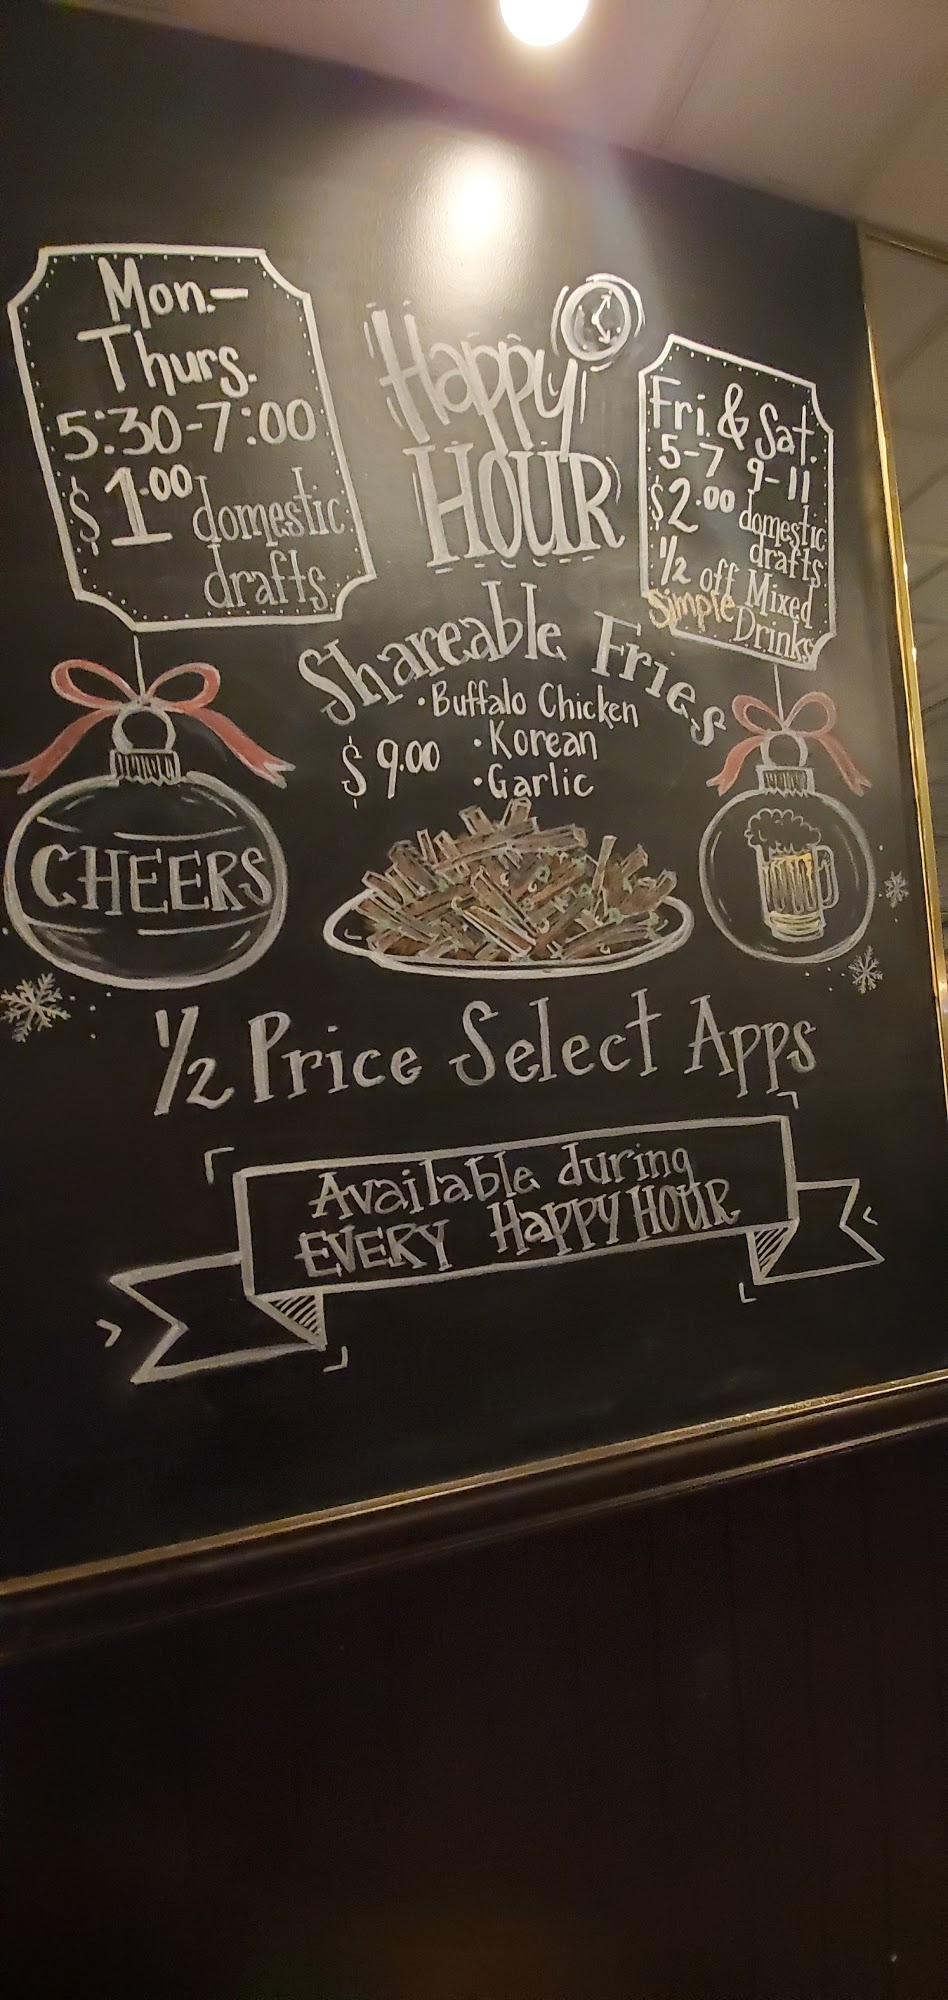 Mon.-
Thurs.
5:30-7:00
$1.00 domestic
drafts
Happy
HOUR
Fri. & Sat.
5-7 9-11
$2.00 domestic
drafts
1/2 off Mixed
Simple Drinks
Shareable Fries
• Buffalo Chicken
$9.00 • Korean
• Garlic
CHEERS
1/2 Price Select Apps
Available during
EVERY Happy HOUR